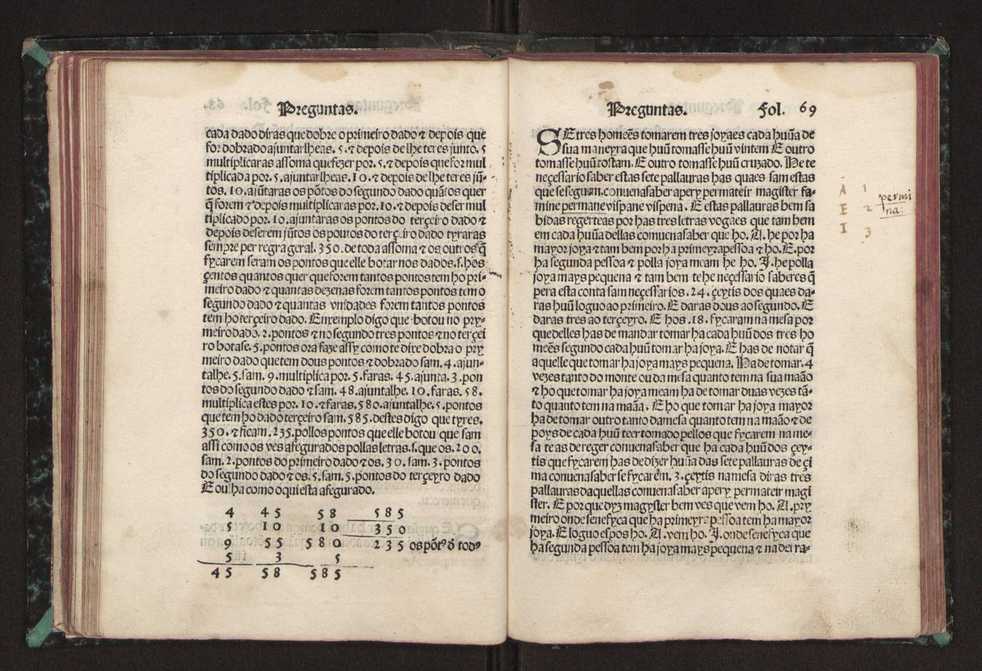 Preguntas.
cada dado diras que dobre o primeiro dado ⁊ depois que
for dobrado ajuntarlheas. 5. ⁊ depois de lhe teres junto. 5
multiplicaras assoma que fezer por. 5. ⁊ depois que for mul
tiplicado por. 5. ajuntarlheas. 10. ⁊ depois de lhe teres jũ-
tos. 10. ajũtaras os põtos do segundo dado quãtos quer
q̃ forem ⁊ depois multiplicaras por. 10. ⁊ depois de ser mul
tiplicado por. 10. ajuntaras os pontos do terçeiro dado ⁊
depois de serem jũtos os pontos do terçeiro dado tyraras
sempre per regra geral. 350. de toda assoma ⁊ os outros q̃
fycarem seram os pontos que elle botar nos dados. s. hos
çentos quantos quer que forem tantos pontos tem ho pri-
meiro dado ⁊ quantas dezenas forem tantos pontos tem o
segundo dado ⁊ quantas vnidades forem tantos pontos
tem ho terçeiro dado. Enxemplo digo que botou no pry-
meiro dado. 2. pontos ⁊ no segundo tres pontos ⁊ no terçei
ro botase. 5. pontos ora faze assy como te dire dobra o pry
meiro dado que tem dous pontos ⁊ dobrado sam. 4. ajun-
talhe. 5. sam. 9. multiplica por. 5. faras. 45. ajunta. 3. pon
tos do segundo dado ⁊ sam. 48. ajuntalhe. 10. faras. 58.
multiplica estes por. 10. ⁊ faras. 580. ajuntalhe. 5. pontos
que tem ho dado terçeiro sam. 585. destes digo que tyres.
350. ⁊ ficam. 235. pollos pontos que elle botou que sam
assi como os ves afegurados pollas letras. s. que os. 200.
sam. 2. pontos do primeiro dado ⁊ os. 30. sam. 3. pontos
do segundo dado ⁊ os. 5. sam. 5. pontos do terçeyro dado
E oulha como o qui esta afegurado.
4 45 58 585
5 10 10 350
9 55 580 235 os põtˢ õ todˢ
5 3 5
45 58 585
Preguntas. Fol. 69
SE tres homẽes tomarem tres joyaes cada huũa de
sua maneyra que huũ tomasse huũ vintem E outro
tomasse huũ tostam. E outro tomasse huũ cruzado. He te
neçessario saber estas sete pallauras has quaes sam estas
que se seguem. conuen a saber apery permateir magister fa-
mine permane vispane vispena. E estas pallauras bem sa
bidas regerteas por has tres letras vogaes que tam bem
em cada huũa dellas conuen a saber que ho. A. he por ha
mayor joya ⁊ tam bem por ha primeyra pessoa ⁊ ho. E. por
ha segunda pessoa ⁊ polla joya meam he ho. J. he polla
joya mays pequena ⁊ tam bem te he neçessario saberes q̃
pera esta conta sam neçessarios. 24. çeytis dos quaes da-
ras huũ loguo ao primeiro. E daras dous ao segundo. E
daras tres ao terçeyro. E hos. 18. fycaram na mesa por
que delles has de mandar tomar ha cada huũ dos tres ho
meẽs segundo cada huũ tomar ha joya. E has de notar q̃
aquelle que tomar ha joya mays pequena. Ha de tomar. 4
vezes tanto do monte ou da mesa quanto tem na sua maão
⁊ ho que tomar ha joya meam ha de tomar duas vezes tã-
to quanto tem na maãa. E ho que tomar ha joya mayor
ha de tomar outro tanto da mesa quanto tem na maão ⁊ de
poys de cada huũ teer tomado pellos que fycarem na me-
sa te as de reger conuen a saber que ha cada huũ dos çey-
tis que fycarem has de dizer huũa das sete pallauras de çi
ma conuen a saber se fycarẽ. 3. çeytis na mesa diras tres
pallauras daquellas conuen a saber apery permateir magi
ster. E por que dyz magyster bem ves que vem ho. A. pry
meiro onde senefyca que ha primeyra pessoa tem ha mayor
joya. E loguo espos ho. A. vem ho. J. onde senefyca que
ha segunda pessoa tem ha joya mays pequena ⁊ na dera-
A 1
E 2
I 3
permi
na: